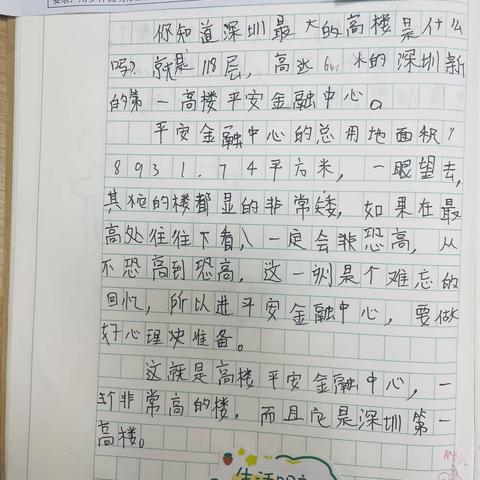 你知道深圳最大的高楼是什么
吗？就是118层，高达600米的深圳新
的第一高楼平安金融中心。
平安金融中心的总用地面积1
8931.74平方米，一眼望去，
其他的楼都显的非常矮，如果在最
高处往往下看，一定会非恐高，从
不恐高到恐高，这一次是个难忘的
回忆，所以进平安金融中心，要做
好心理决准备。
这就是高楼平安金融中心，一
个非常高的楼，而且它是深圳第一
高楼。